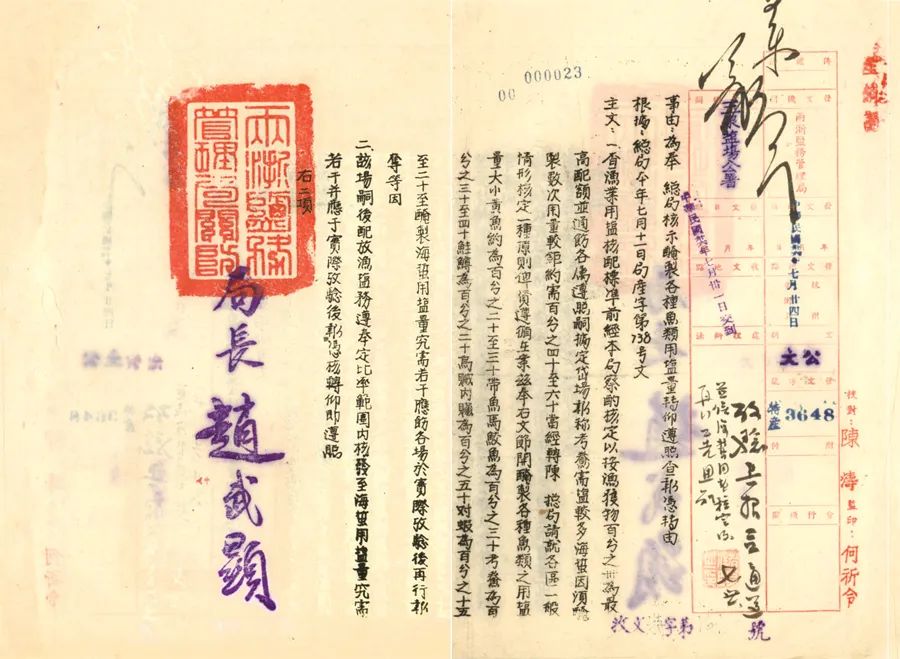 兩浙鹽務管理局
公文
中華民國卅六年七月廿四日
特產 3648
校對：陳濤 監印：何祈令
玉泉鹽場公署
中華民國卅六年七月卅一日交到
000023
00
事由：為奉 總局核示醃製各種魚類用鹽量轉仰遵照查報憑轉由
根據：總局今年七月十二日局產字第738号文
主文：一、查漁業用鹽核配標準前經本局察酌核定以按漁獲物百分之卅為最
高配額並通飭各場遵照嗣據定岱場報稱考鯗需鹽較多海蜇因須醃
製數次用量較鉅約需百分之四十至六十當經轉陳 總局請就各區一般
情形核定一種原則俾資遵循在案茲奉右文節開醃製各種魚類之用鹽
量大小黃魚約為百分之二十至三十帶魚馬鮫魚為百分之三十考鯗為百
分之三十至四十鮭鱘為百分之二十魚臟內臟為百分之五十对蝦為百分之十五
至二十至醃製海蜇用鹽量究需若干應飭各場於實際攷驗後再行報
奪等因
二、該場嗣後配放漁鹽務遵奉定比率範圍內核發至海蜇用鹽量究需
若干并應于實際攷驗後報憑核轉仰即遵照
右二項
局長 趙武顯
收文 字第 號